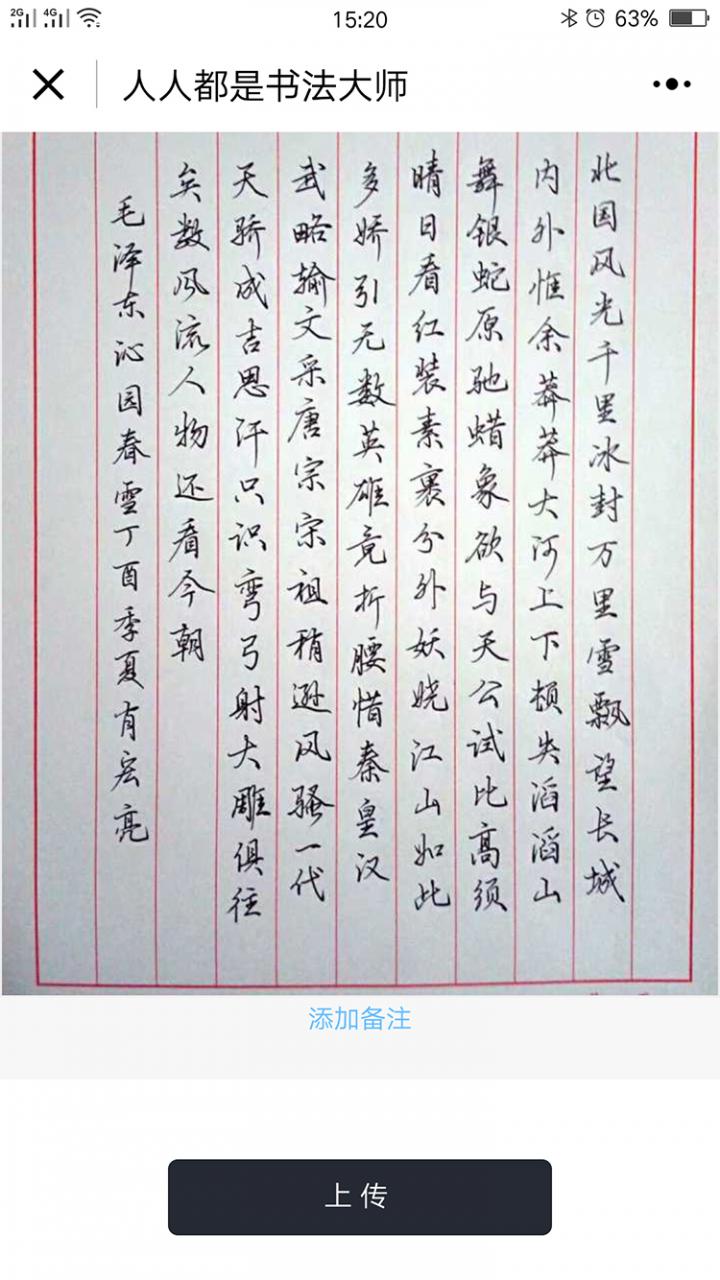 2G 4G 15:20 63%
人人都是书法大师
北国风光千里冰封万里雪飘望长城
内外惟余莽莽大河上下顿失滔滔山
舞银蛇原驰蜡象欲与天公试比高须
晴日看红装素裹分外妖娆江山如此
多娇引无数英雄竟折腰惜秦皇汉
武略输文采唐宗宋祖稍逊风骚一代
天骄成吉思汗只识弯弓射大雕俱往
矣数风流人物还看今朝
毛泽东沁园春雪丁酉季夏有宏亮
添加备注
上传